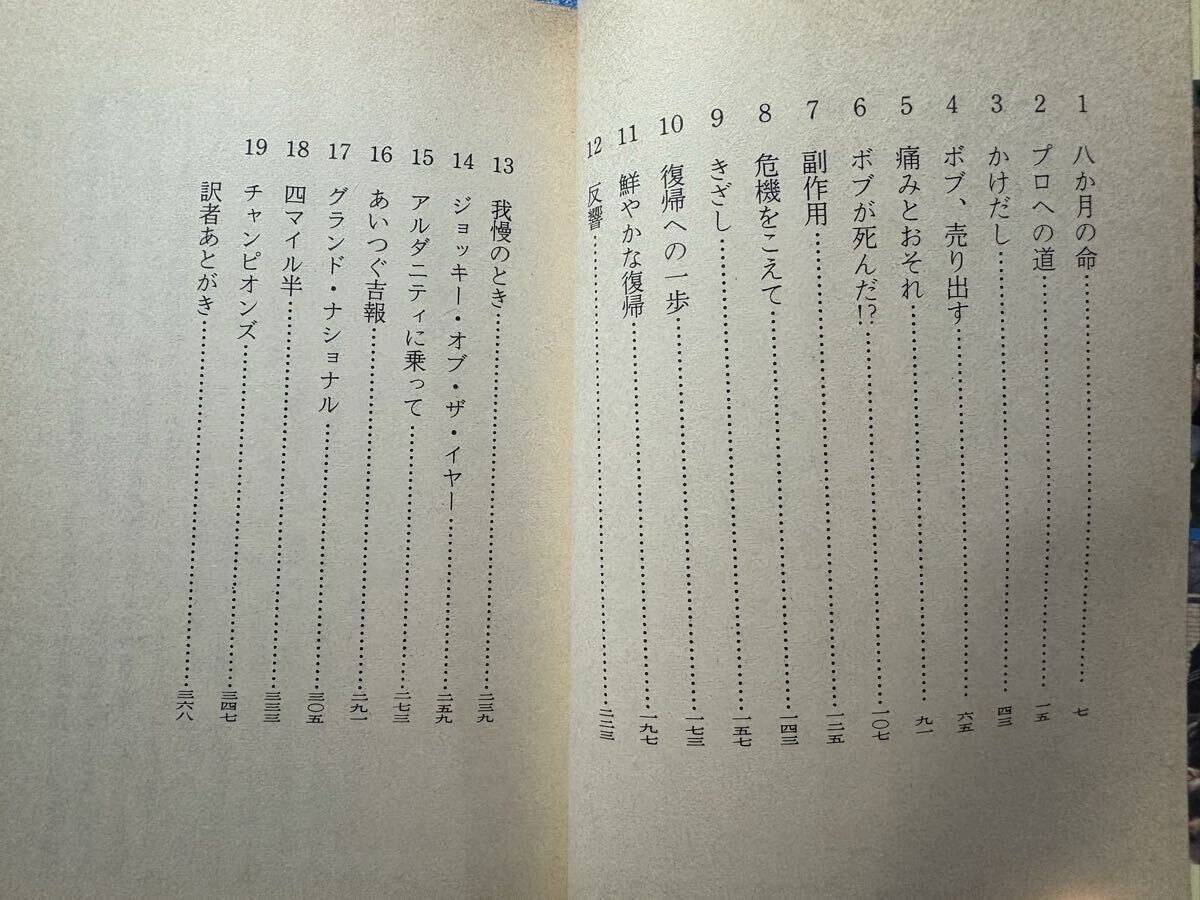 1 八か月の命……七
2 プロへの道……一五
3 かけだし……四三
4 ボブ、売り出す……六五
5 痛みとおそれ……九一
6 ボブが死んだ!?……一〇七
7 副作用……一二五
8 危機をこえて……一四三
9 きざし……一五七
10 復帰への一歩……一七三
11 鮮やかな復帰……一九七
12 反響……二二三
13 我慢のとき……二三九
14 ジョッキー・オブ・ザ・イヤー……二五九
15 アルダニティに乗って……二七三
16 あいつぐ吉報……二九一
17 グランド・ナショナル……三〇五
18 四マイル半……三三三
19 チャンピオンズ……三四七
訳者あとがき……三六八